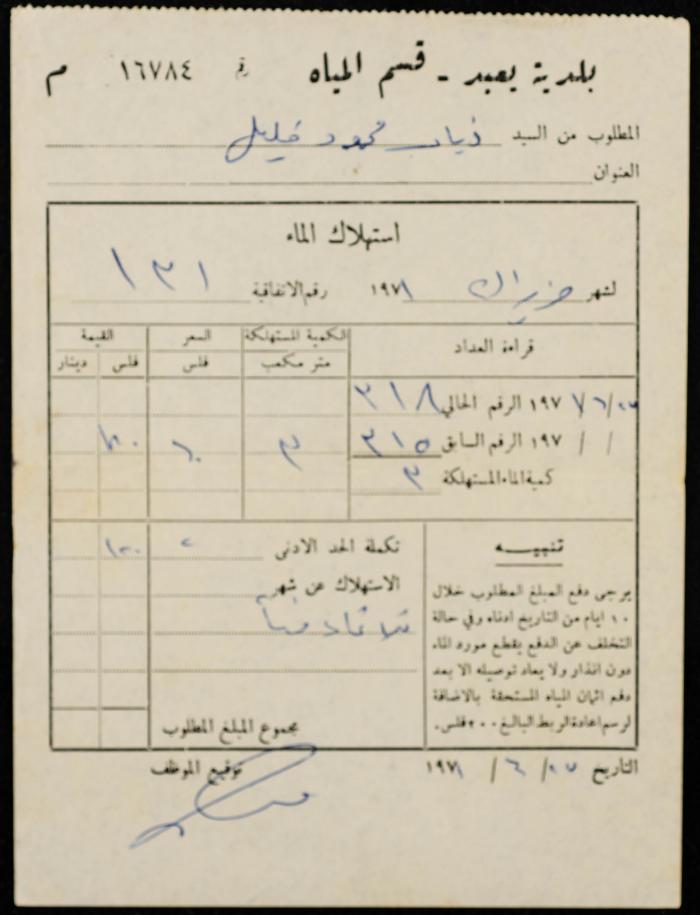 بلدية يعبد - قسم المياه رقم ١٦٧٨٤ م
المطلوب من السيد ذياب محمود خليل
العنوان
استهلاك الماء
لشهر حزيران ١٩٧١ رقم الاتفاقية ١٣١
قراءة العداد الكمية المستهلكة السعر القيمة
متر مكعب فلس فلس دينار
١٩٧ الرقم الحالي ٣١٨
/ / ١٩٧ الرقم السابق ٣١٥ ٣ ٦٠ ١٨٠
كمية الماء المستهلكة ٣
تنبيه
يرجى دفع المبلغ المطلوب خلال
١٠ ايام من التاريخ ادناه وفي حالة
التخلف عن الدفع يقطع مورد الماء
دون انذار ولا يعاد توصيله الا بعد
دفع اثمان المياه المستحقة بالاضافة
لرسم اعادة الربط البالغ ٢٠٠ فلس.
تكملة الحد الادنى ٢ ١٢٠
الاستهلاك عن شهر
مجموع المبلغ المطلوب
التاريخ ٢٥ / ٦ / ١٩٧١
توقيع الموظف